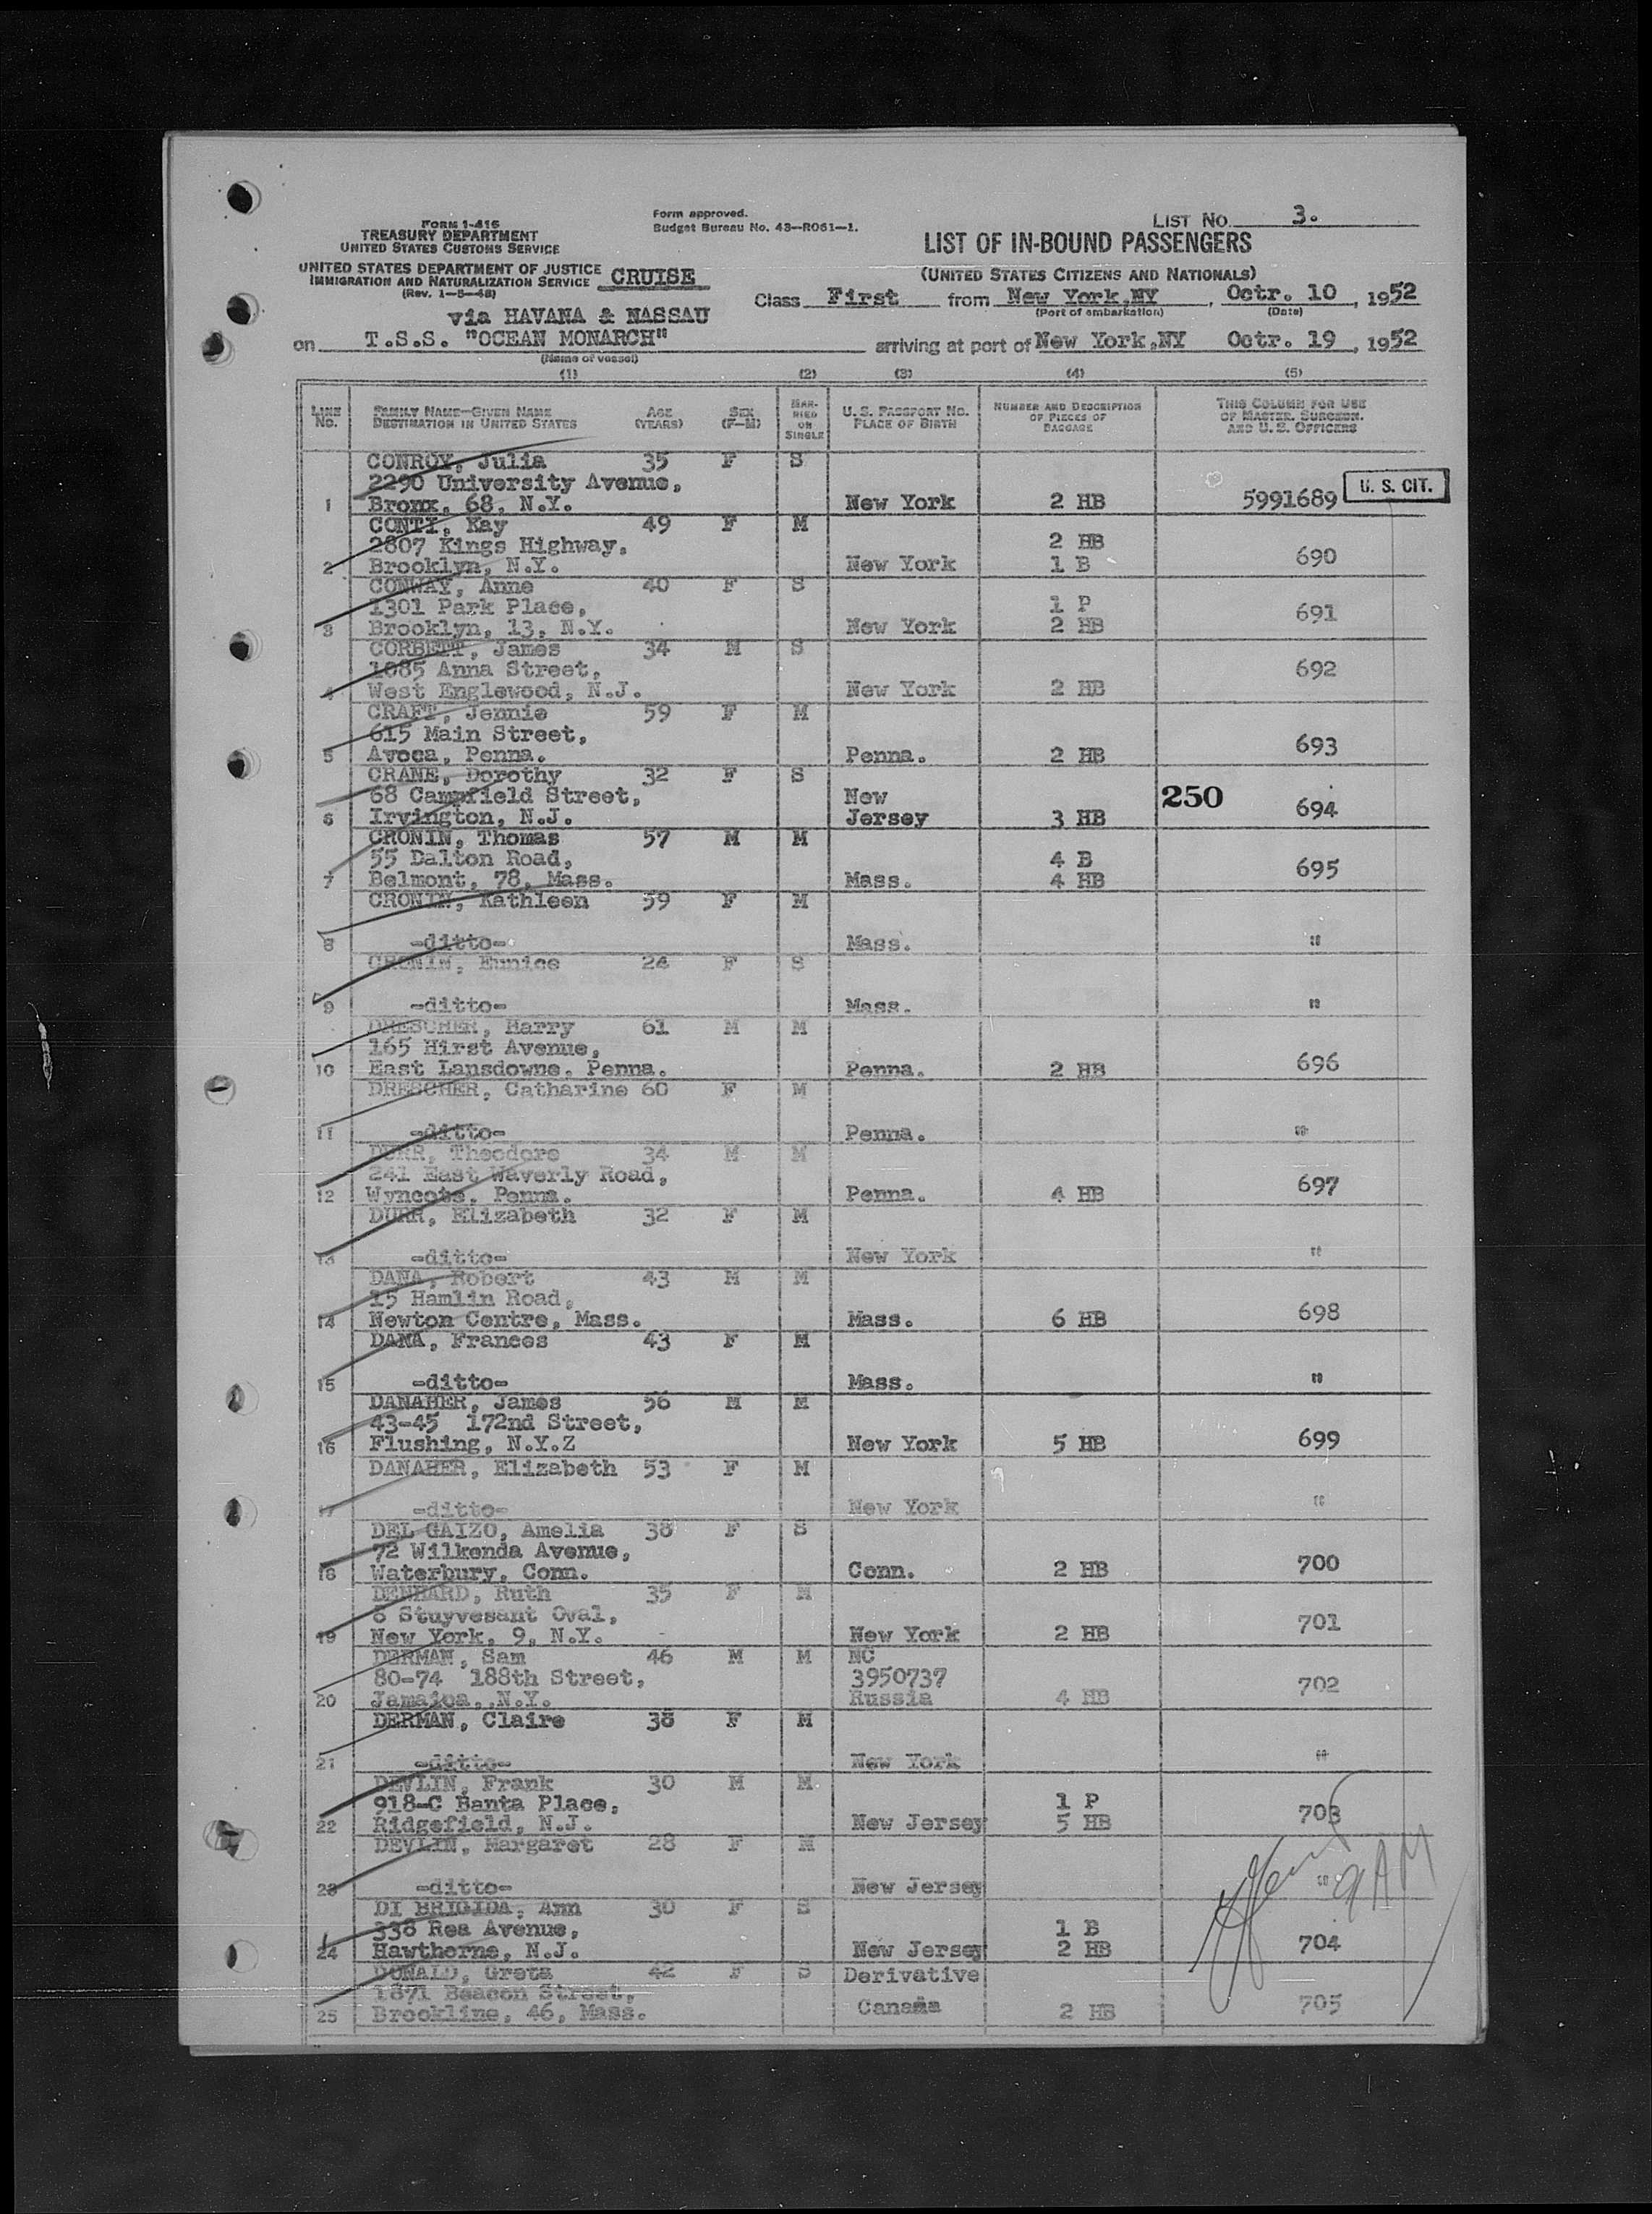 LIST NO. 3.
FORM I-415
TREASURY DEPARTMENT
UNITED STATES CUSTOMS SERVICE
Form approved.
Budget Bureau No. 43—R061—1.
LIST OF IN-BOUND PASSENGERS
(UNITED STATES CITIZENS AND NATIONALS)
UNITED STATES DEPARTMENT OF JUSTICE
IMMIGRATION AND NATURALIZATION SERVICE CRUISE
(Rev. 1—5—48)
Class First from New York,NY , Octr. 10 , 1952
(Port of embarkation) (Date)
via HAVANA & NASSAU
on T.S.S. "OCEAN MONARCH" arriving at port of New York,NY Octr. 19 , 1952
(Name of vessel)
(1) (2) (3) (4) (5)
LINE NO. FAMILY NAME—GIVEN NAME DESTINATION IN UNITED STATES AGE (YEARS) SEX (F—M) MARRIED OR SINGLE U. S. PASSPORT NO. PLACE OF BIRTH NUMBER AND DESCRIPTION OF PIECES OF BAGGAGE THIS COLUMN FOR USE OF MASTER, SURGEON, AND U. S. OFFICERS
CONROY, Julia 35 F S
2290 University Avenue, U. S. CIT.
1 Bronx, 68, N.Y. New York 2 HB 5991689
CONTI, Kay 49 F M
2807 Kings Highway, 2 HB
2 Brooklyn, N.Y. New York 1 B 690
CONWAY, Anne 40 F S
1301 Park Place, 1 P
3 Brooklyn, 13, N.Y. New York 2 HB 691
CORBETT, James 34 M S
1085 Anna Street, 692
4 West Englewood, N.J. New York 2 HB
CRAFT, Jennie 59 F M
615 Main Street,
5 Avoca, Penna. Penna. 2 HB 693
CRANE, Dorothy 32 F S
68 Campfield Street, New 250
6 Irvington, N.J. Jersey 3 HB 694
CRONIN, Thomas 57 M M
55 Dalton Road, 4 B
7 Belmont, 78, Mass. Mass. 4 HB 695
CRONIN, Kathleen 59 F M
8 -ditto- Mass. "
CRONIN, Eunice 24 F S
9 -ditto- Mass. "
DRESCHER, Harry 61 M M
165 Hirst Avenue,
10 East Lansdowne, Penna. Penna. 2 HB 696
DRESCHER, Catharine 60 F M
11 -ditto- Penna. "
DURR, Theodore 34 M M
241 East Waverly Road,
12 Wyncote, Penna. Penna. 4 HB 697
DURR, Elizabeth 32 F M
13 -ditto- New York "
DANA, Robert 43 M M
15 Hamlin Road,
14 Newton Centre, Mass. Mass. 6 HB 698
DANA, Frances 43 F M
15 -ditto- Mass. "
DANAHER, James 56 M M
43-45 172nd Street,
16 Flushing, N.Y.Z New York 5 HB 699
DANAHER, Elizabeth 53 F M
17 -ditto- New York "
DEL GAIZO, Amelia 38 F S
72 Wilkenda Avenue,
18 Waterbury, Conn. Conn. 2 HB 700
DENHARD, Ruth 35 F M
8 Stuyvesant Oval,
19 New York, 9, N.Y. New York 2 HB 701
DERMAN, Sam 46 M M NC
80-74 188th Street, 3950737
20 Jamaica, N.Y. Russia 4 HB 702
DERMAN, Claire 38 F M
21 -ditto- New York "
DEVLIN, Frank 30 M M
918-C Banta Place, 1 P
22 Ridgefield, N.J. New Jersey 5 HB 703
DEVLIN, Margaret 28 F M
23 -ditto- New Jersey " 9AM
DI BRIGIDA, Ann 30 F S
338 Rea Avenue, 1 B
24 Hawthorne, N.J. New Jersey 2 HB 704
DONALD, Greta 42 F S Derivative
1871 Beacon Street,
25 Brookline, 46, Mass. Canada 2 HB 705